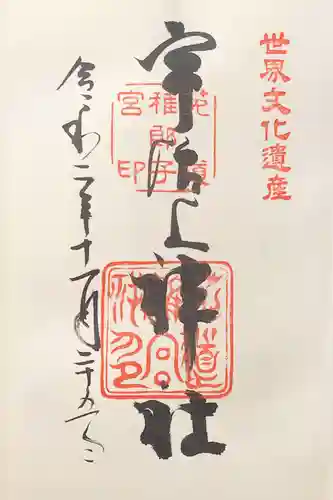 世界文化遺産
宇治上神社
菟道
稚郎子
宮印
令和二年十一月二十五日